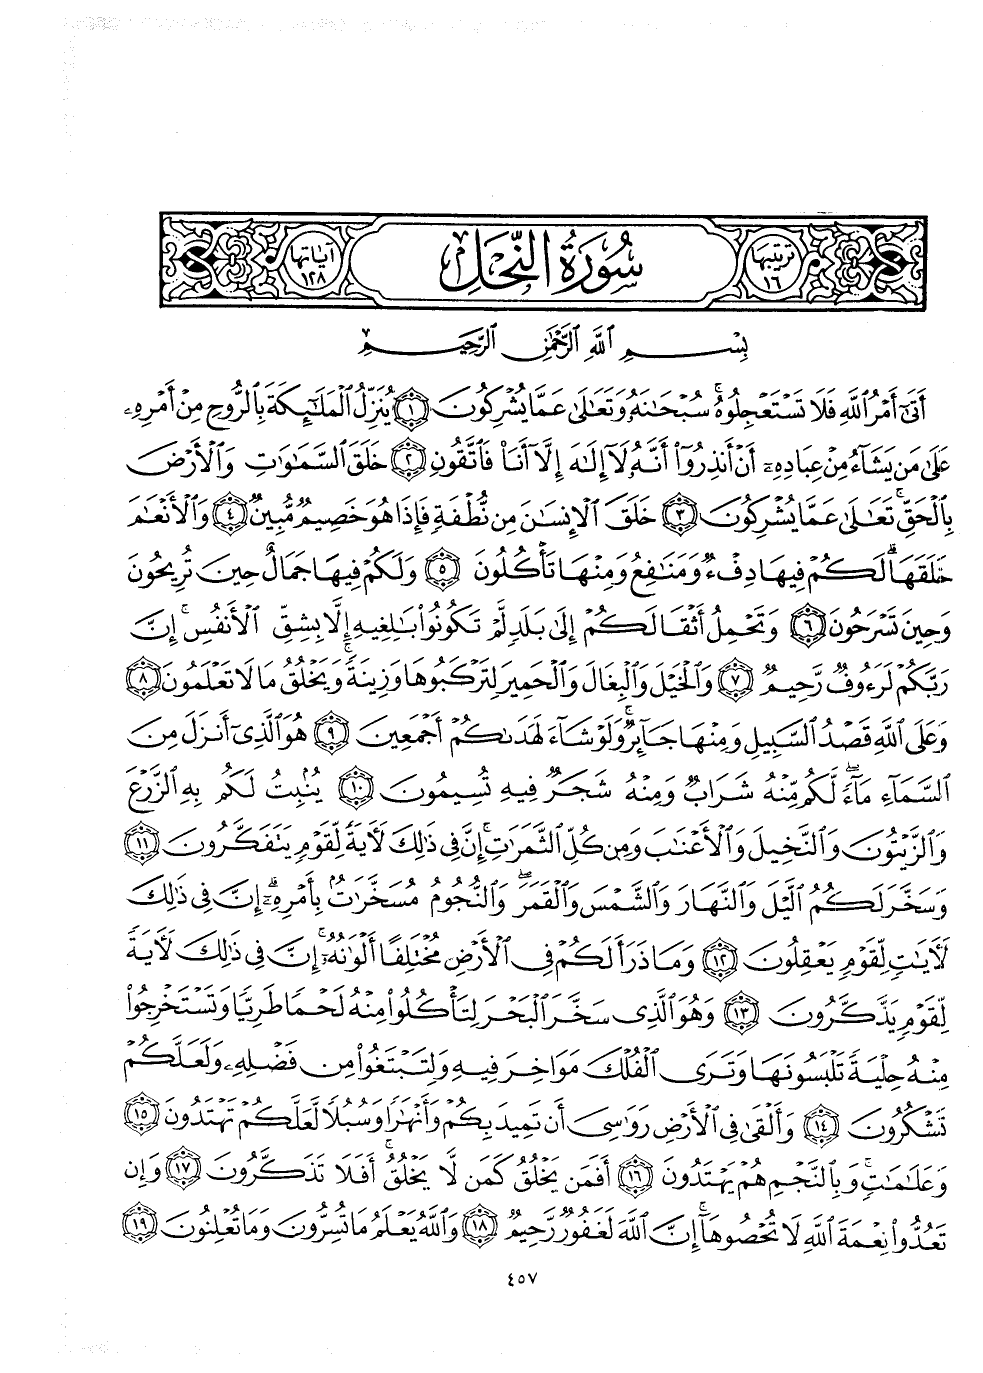 ترتيبها ١٦ سُورَةُ النَّحْلِ آياتها ١٢٨
بِسْمِ ٱللَّهِ ٱلرَّحْمَٰنِ ٱلرَّحِيمِ
أَتَىٰٓ أَمْرُ ٱللَّهِ فَلَا تَسْتَعْجِلُوهُ ۚ سُبْحَٰنَهُۥ وَتَعَٰلَىٰ عَمَّا يُشْرِكُونَ ١ يُنَزِّلُ ٱلْمَلَٰٓئِكَةَ بِٱلرُّوحِ مِنْ أَمْرِهِۦ
عَلَىٰ مَن يَشَآءُ مِنْ عِبَادِهِۦٓ أَنْ أَنذِرُوٓا۟ أَنَّهُۥ لَآ إِلَٰهَ إِلَّآ أَنَا۠ فَٱتَّقُونِ ٢ خَلَقَ ٱلسَّمَٰوَٰتِ وَٱلْأَرْضَ
بِٱلْحَقِّ ۚ تَعَٰلَىٰ عَمَّا يُشْرِكُونَ ٣ خَلَقَ ٱلْإِنسَٰنَ مِن نُّطْفَةٍ فَإِذَا هُوَ خَصِيمٌ مُّبِينٌ ٤ وَٱلْأَنْعَٰمَ
خَلَقَهَا ۗ لَكُمْ فِيهَا دِفْءٌ وَمَنَٰفِعُ وَمِنْهَا تَأْكُلُونَ ٥ وَلَكُمْ فِيهَا جَمَالٌ حِينَ تُرِيحُونَ
وَحِينَ تَسْرَحُونَ ٦ وَتَحْمِلُ أَثْقَالَكُمْ إِلَىٰ بَلَدٍ لَّمْ تَكُونُوا۟ بَٰلِغِيهِ إِلَّا بِشِقِّ ٱلْأَنفُسِ ۚ إِنَّ
رَبَّكُمْ لَرَءُوفٌ رَّحِيمٌ ٧ وَٱلْخَيْلَ وَٱلْبِغَالَ وَٱلْحَمِيرَ لِتَرْكَبُوهَا وَزِينَةً ۚ وَيَخْلُقُ مَا لَا تَعْلَمُونَ ٨
وَعَلَى ٱللَّهِ قَصْدُ ٱلسَّبِيلِ وَمِنْهَا جَآئِرٌ ۚ وَلَوْ شَآءَ لَهَدَىٰكُمْ أَجْمَعِينَ ٩ هُوَ ٱلَّذِىٓ أَنزَلَ مِنَ
ٱلسَّمَآءِ مَآءً ۖ لَّكُم مِّنْهُ شَرَابٌ وَمِنْهُ شَجَرٌ فِيهِ تُسِيمُونَ ١٠ يُنۢبِتُ لَكُم بِهِ ٱلزَّرْعَ
وَٱلزَّيْتُونَ وَٱلنَّخِيلَ وَٱلْأَعْنَٰبَ وَمِن كُلِّ ٱلثَّمَرَٰتِ ۗ إِنَّ فِى ذَٰلِكَ لَءَايَةً لِّقَوْمٍ يَتَفَكَّرُونَ ١١
وَسَخَّرَ لَكُمُ ٱلَّيْلَ وَٱلنَّهَارَ وَٱلشَّمْسَ وَٱلْقَمَرَ ۖ وَٱلنُّجُومُ مُسَخَّرَٰتٌۢ بِأَمْرِهِۦٓ ۗ إِنَّ فِى ذَٰلِكَ
لَءَايَٰتٍ لِّقَوْمٍ يَعْقِلُونَ ١٢ وَمَا ذَرَأَ لَكُمْ فِى ٱلْأَرْضِ مُخْتَلِفًا أَلْوَٰنُهُۥٓ ۗ إِنَّ فِى ذَٰلِكَ لَءَايَةً
لِّقَوْمٍ يَذَّكَّرُونَ ١٣ وَهُوَ ٱلَّذِى سَخَّرَ ٱلْبَحْرَ لِتَأْكُلُوا۟ مِنْهُ لَحْمًا طَرِيًّا وَتَسْتَخْرِجُوا۟
مِنْهُ حِلْيَةً تَلْبَسُونَهَا وَتَرَى ٱلْفُلْكَ مَوَاخِرَ فِيهِ وَلِتَبْتَغُوا۟ مِن فَضْلِهِۦ وَلَعَلَّكُمْ
تَشْكُرُونَ ١٤ وَأَلْقَىٰ فِى ٱلْأَرْضِ رَوَٰسِىَ أَن تَمِيدَ بِكُمْ وَأَنْهَٰرًا وَسُبُلًا لَّعَلَّكُمْ تَهْتَدُونَ ١٥
وَعَلَٰمَٰتٍ ۚ وَبِٱلنَّجْمِ هُمْ يَهْتَدُونَ ١٦ أَفَمَن يَخْلُقُ كَمَن لَّا يَخْلُقُ ۗ أَفَلَا تَذَكَّرُونَ ١٧ وَإِن
تَعُدُّوا۟ نِعْمَةَ ٱللَّهِ لَا تُحْصُوهَآ ۗ إِنَّ ٱللَّهَ لَغَفُورٌ رَّحِيمٌ ١٨ وَٱللَّهُ يَعْلَمُ مَا تُسِرُّونَ وَمَا تُعْلِنُونَ ١٩
٤٥٧